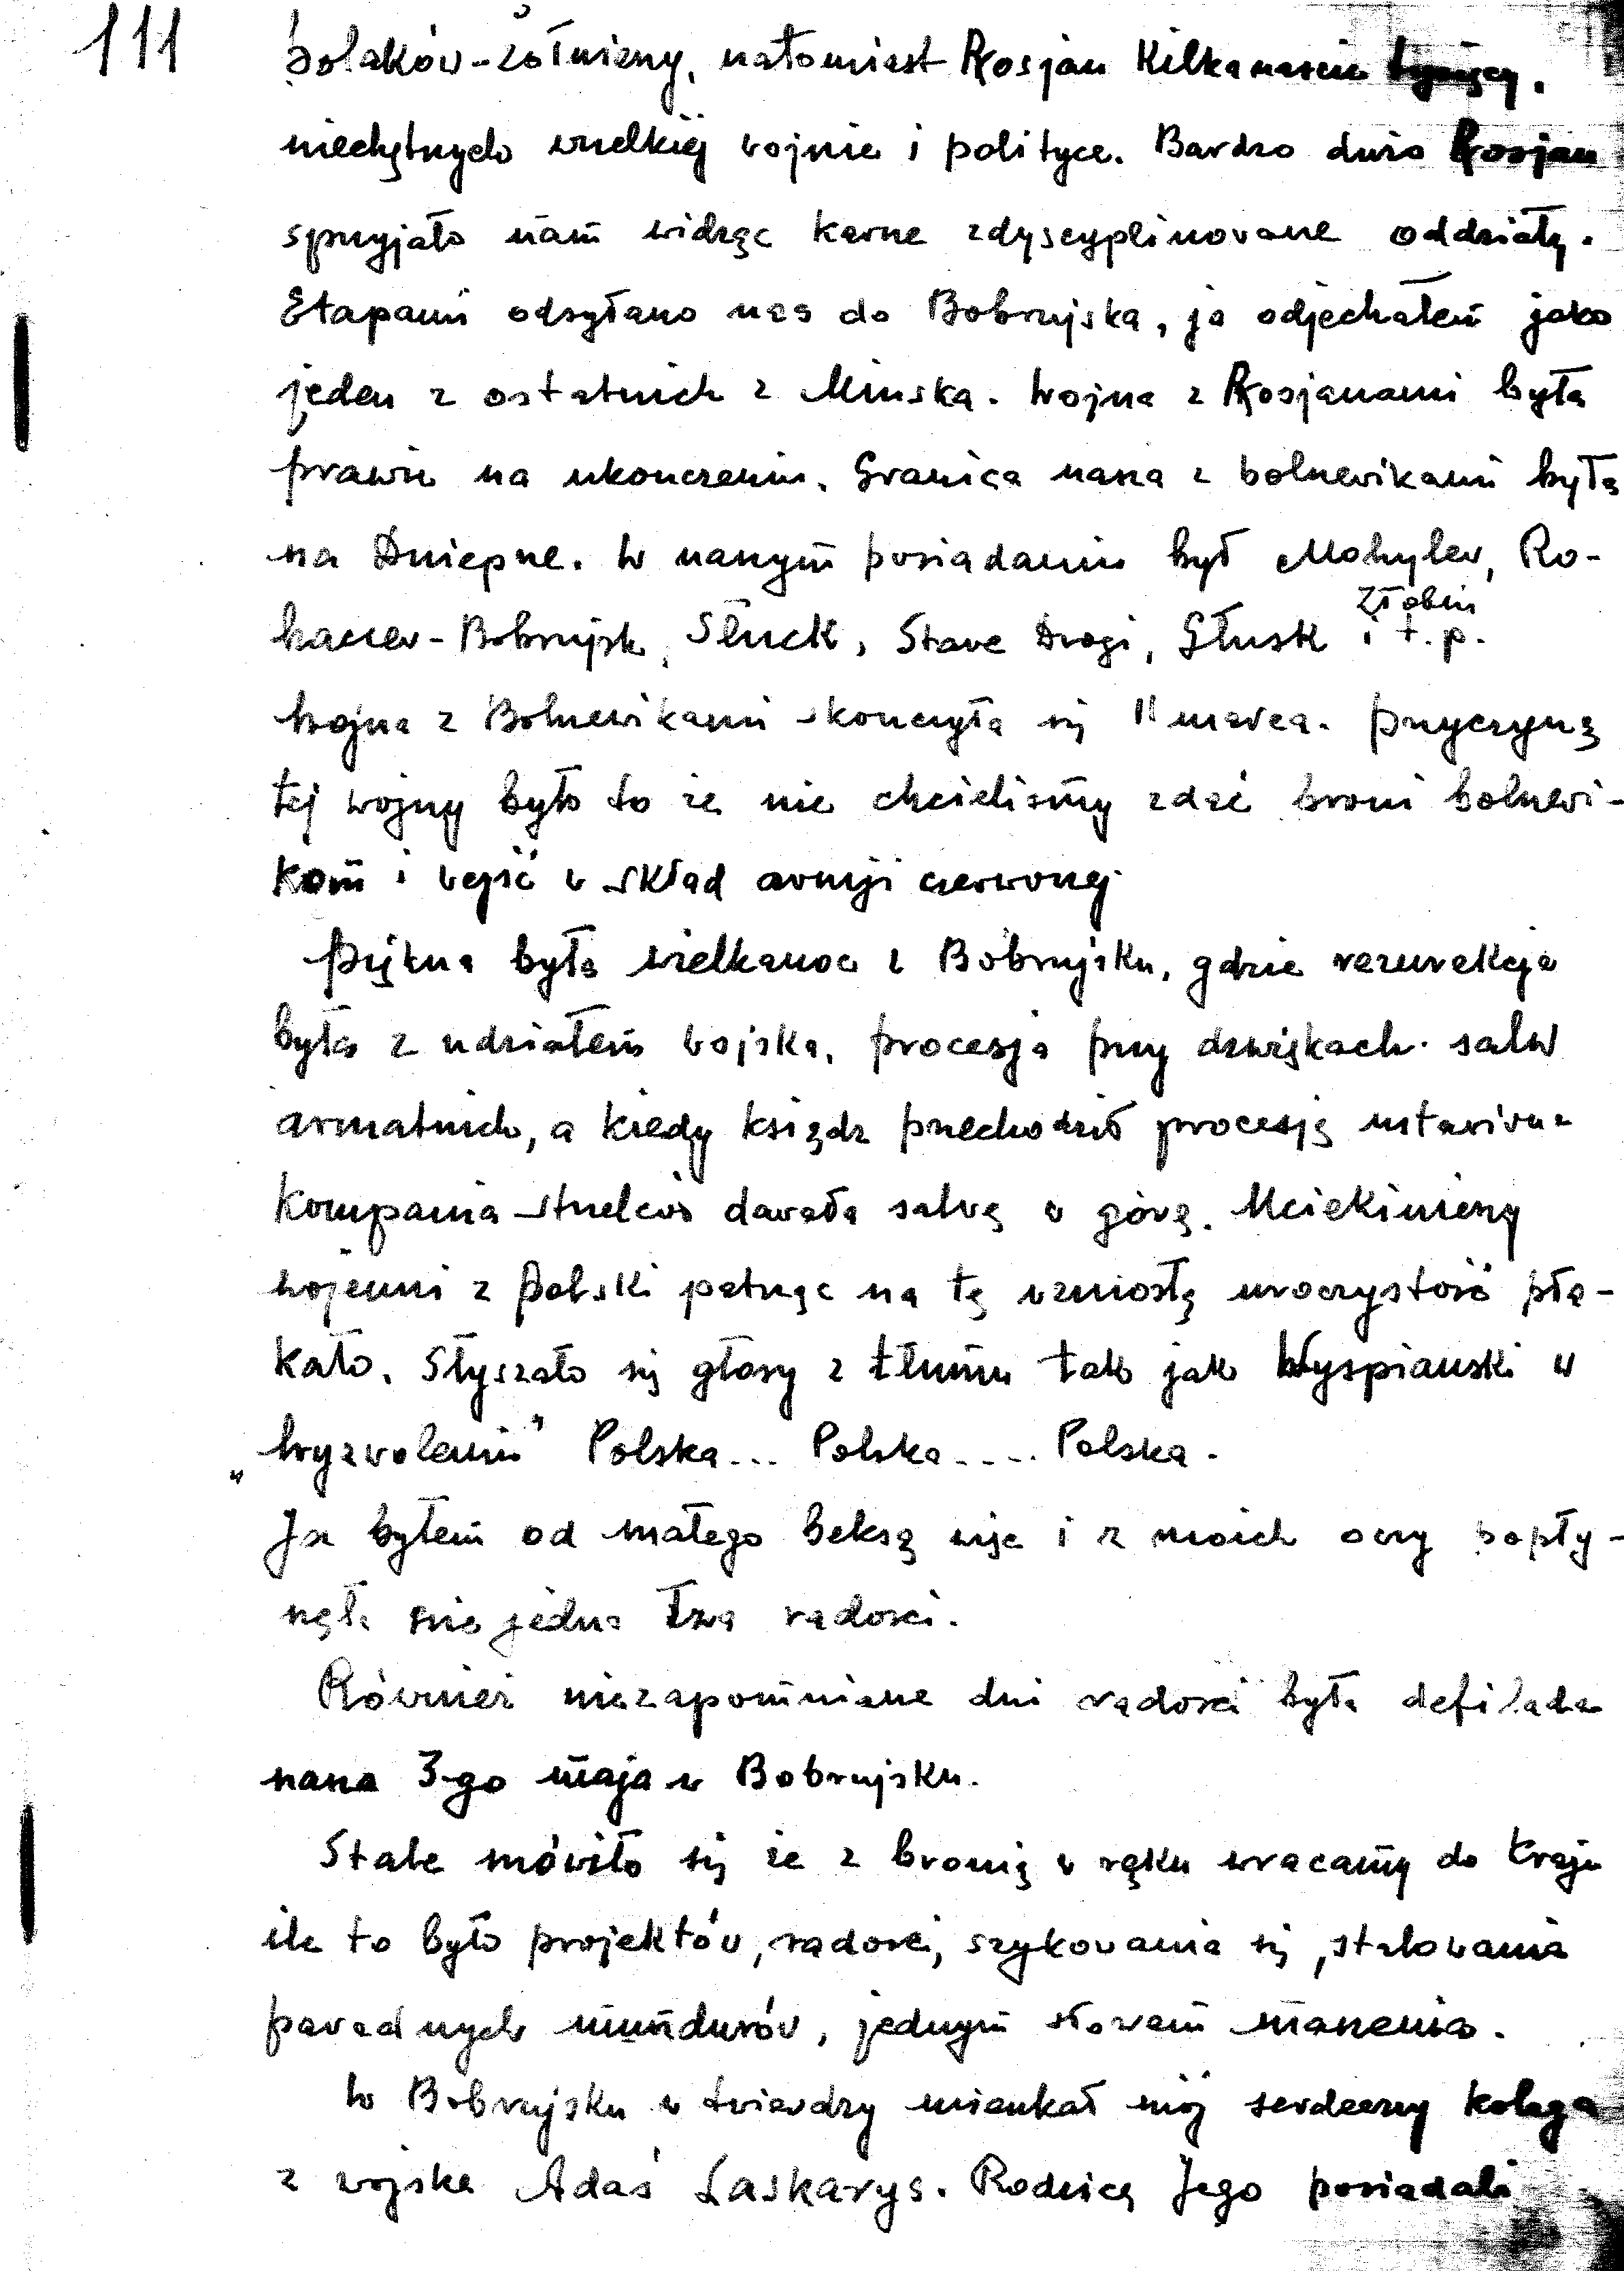 111
Polaków-żołnierzy, natomiast Rosjan kilkanaście tysięcy,
niechętnych wszelkiej wojnie i polityce. Bardzo dużo Rosjan
sprzyjało nam widząc karne zdyscyplinowane oddziały.
Etapami odsyłano nas do Bobrujska, ja odjechałem jako
jeden z ostatnich z Mińska. Wojna z Rosjanami była
prawie na ukończeniu. Granica nasza z bolszewikami była
na Dnieprze. W naszym posiadaniu był Mohylew, Ro-
haczew - Bobrujsk, Słuck, Stare Drogi, Głusk i t.p.
Żłobin
Wojna z Bolszewikami skończyła się 11 marca. Przyczyną
tej wojny było to że nie chcieliśmy zdać broni bolszewi-
kom i wejść w skład armji czerwonej.
Piękna była wielkanoc w Bobrujsku, gdzie rezurekcja
była z udziałem wojska, procesja przy dźwiękach salw
armatnich, a kiedy ksiądz przechodził procesją ustawiona
kompania strzelców dawała salwę w górę. Uciekinierzy
wojenni z Polski patrząc na tę wzniosłą uroczystość pła-
kało. Słyszało się głosy z tłumu tak jak Wyspiański w
„Wyzwoleniu” Polska... Polska.... Polska.
Ja byłem od małego beksą więc i z moich oczy popły-
nęła nie jedna łza radości.
Również niezapomniane dni radości była defilada
nasza 3-go maja w Bobrujsku.
Stale mówiło się że z bronią w ręku wracamy do kraju
ile to było projektów, radości, szykowania się, stalowania
paradnych mundurów, jednym słowem marzenia.
W Bobrujsku w twierdzy mieszkał mój serdeczny kolega
z wojska Adaś Laskarys. Rodzice Jego posiadali